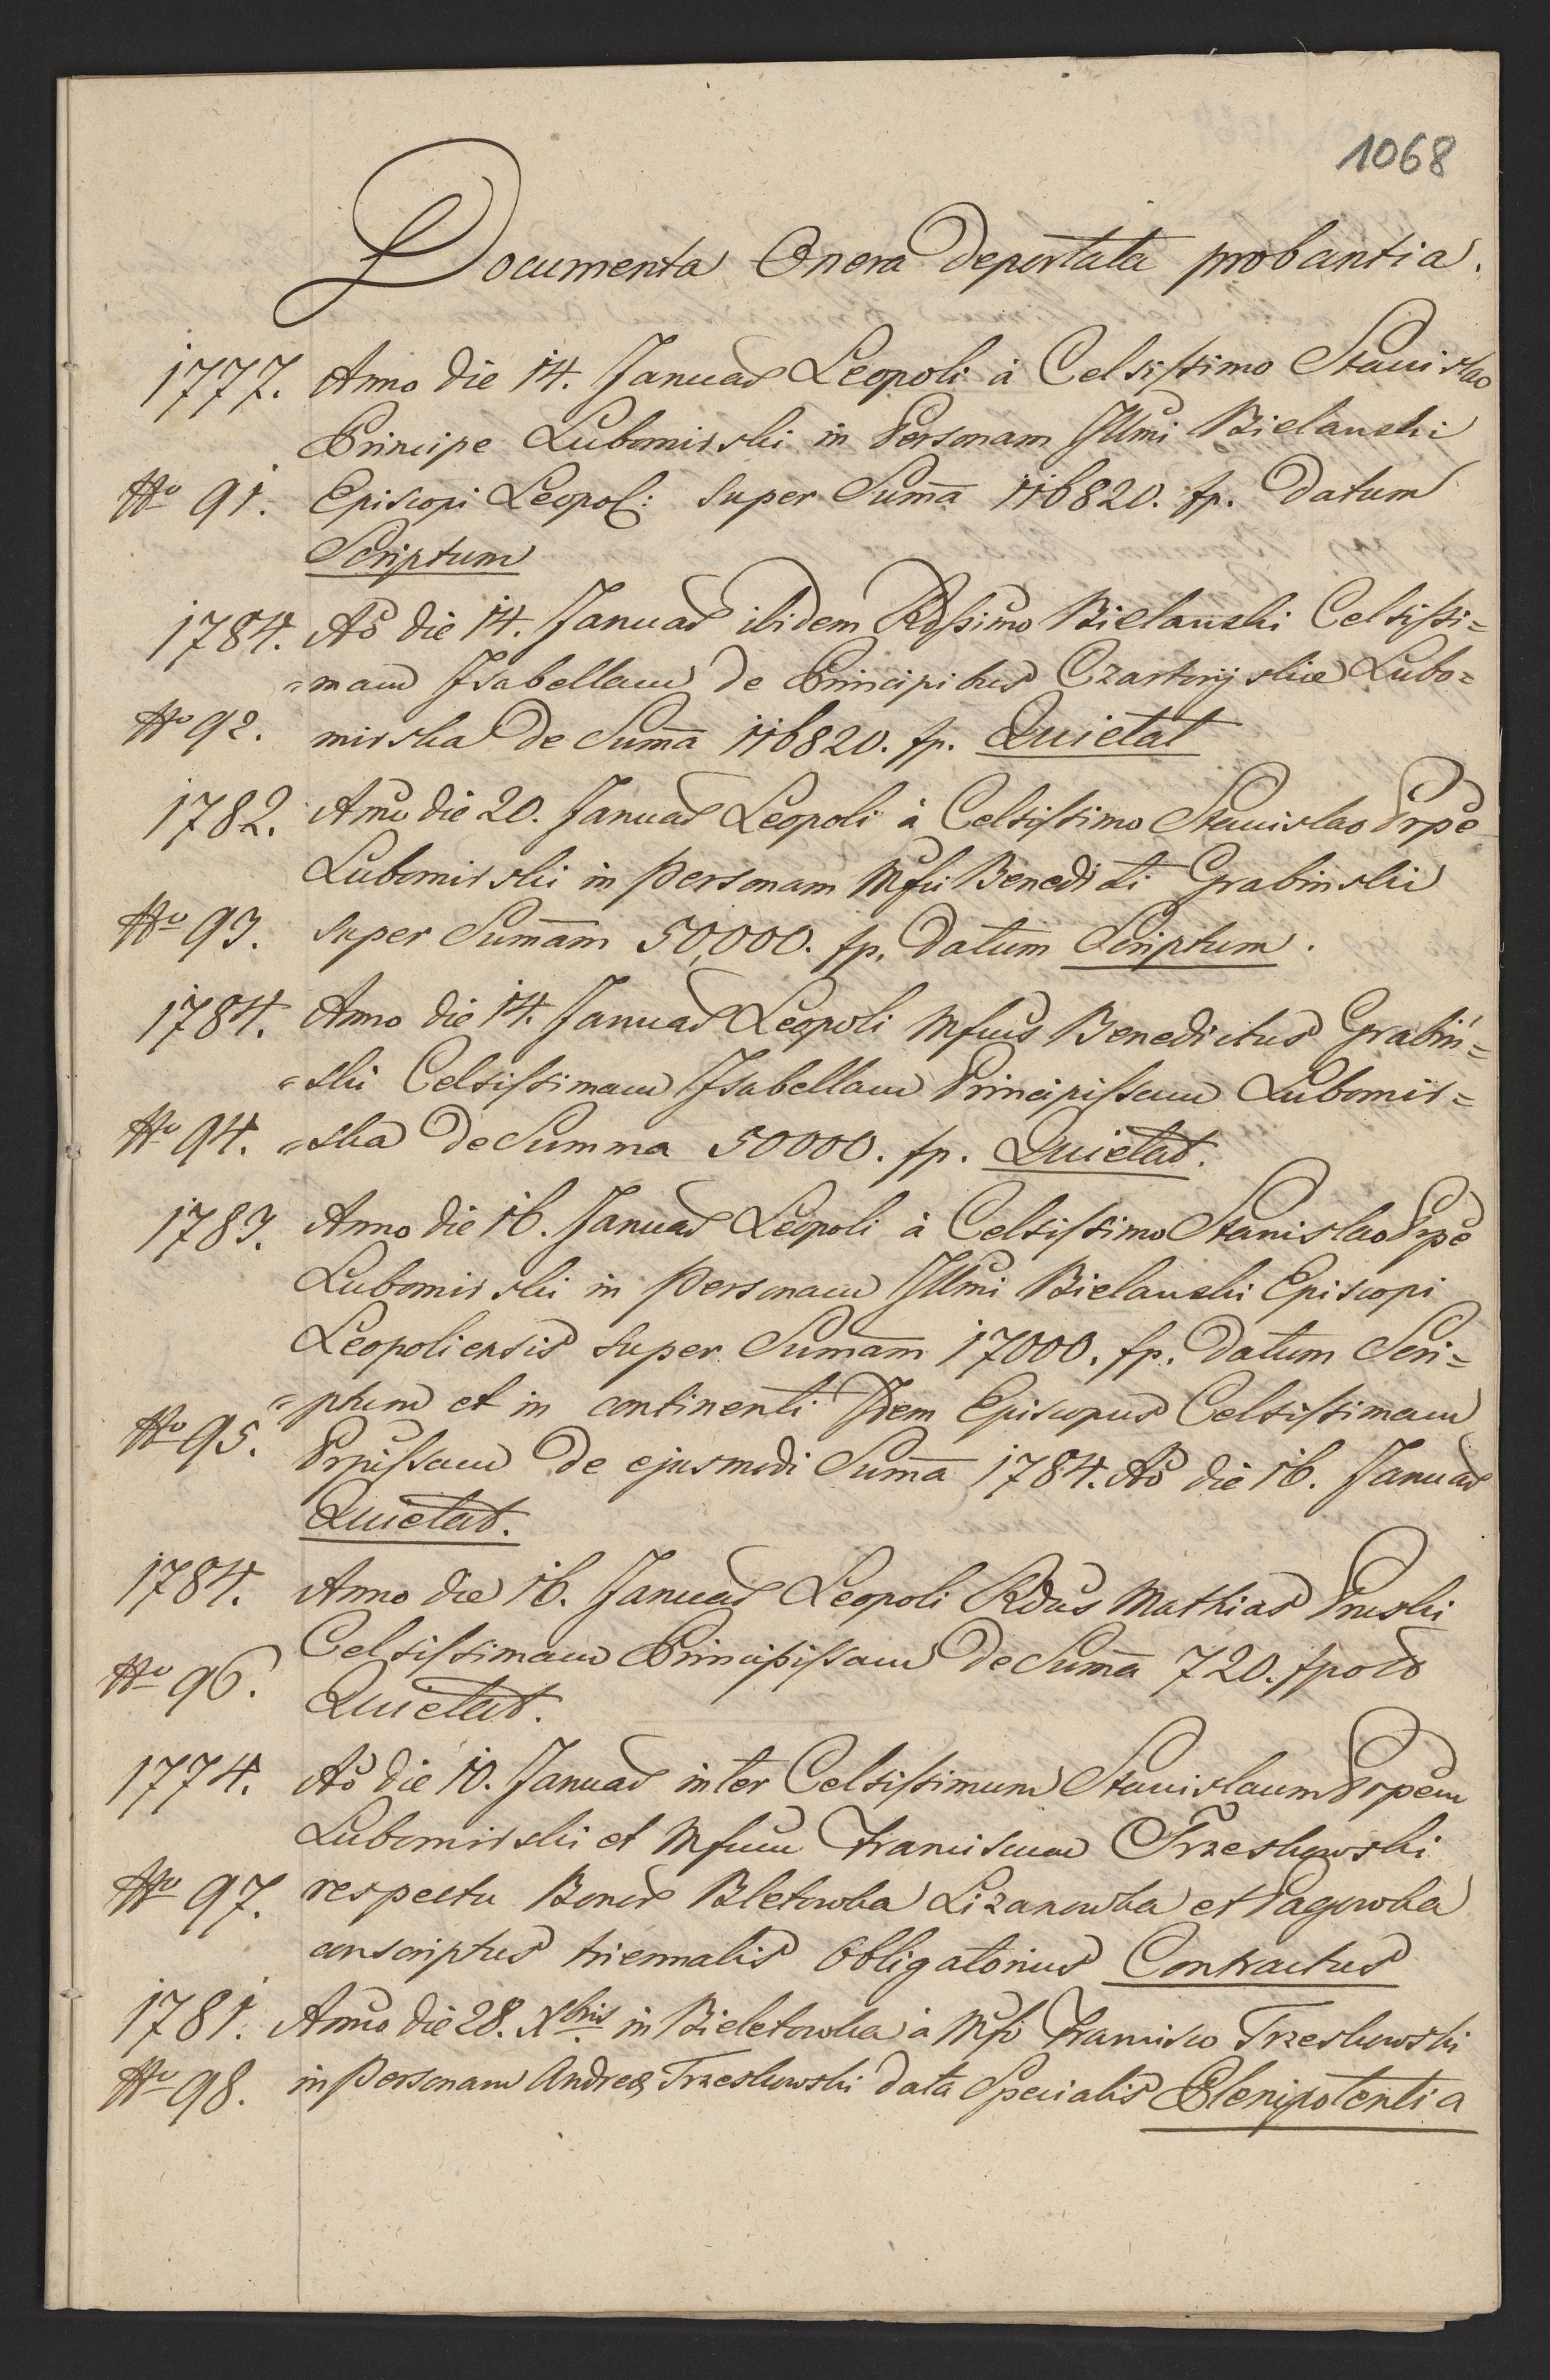 1068
Documenta Onera deportata probantia.
1777. Anno die 14. Januar Leopoli à Celsissimo Stanislao
Principe Lubomirski in Personam Jllmi Bielanski
Nro 91. Episcopi Leopol: super Suma 116820. fp. datum
Scriptum
1784. Ao die 14. Januar ibidem Rdssimo Bielanski Celsissi=
=mam Jsabellam de Principibus Czartoryskie Lubo=
Nro 92. mirska de Suma 116820. fp. Quietat
1782. Anno die 20. Januar Leopoli à Celsissimo Stanislao Prpe
Lubomirski in personam Mfci Benedicti Grabinski
Nro 93. super Sumam 50,000. fp. datum Scriptum.
1784. Anno die 14. Januar Leopoli Mfcus Benedictus Grabin=
=ski Celsissimam Jsabellam Principissam Lubomir=
Nro 94. =ska de Summa 50000. fp. Quietat.
1783. Anno die 16. Januar Leopoli à Celsissimo Stanislao Prpe
Lubomirski in personam Jllmi Bielanski Episcopi
Leopoliensis super Sumam 17000. fp. datum Scri=
=ptum et in continenti Jdem Episcopus Celsissimam
Nro 95. Prpissam de ejusmodi Suma 1784. Ao die 16. Januar
Quietat.
1784. Anno die 16. Januar Leopoli Rdus Mathias Pruski
Celsissimam Principissam de Suma 720. fpol
Nro 96. Quietat.
1774. Ao die 10. Januar inter Celsissimum Stanislaum Prpem
Lubomirski et Mfcum Franciscum Trzeskowski
Nro 97. respectu Bonor Bletowka Lizanowka et Pagowka
conscriptus triennalis obligatorius Contractus
1781. Anno die 28. Xbris in Bieletowka à Mfco Francisco Trzeskowski
Nro 98. in personam Andreæ Trzeskowski data Specialis Plenipotentia